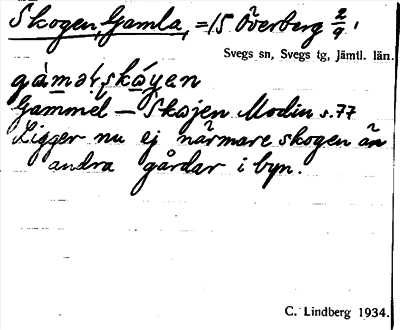 Skogen, Gamla, =15 Överberg 2/9.
Svegs sn, Svegs tg, Jämtl. län.
gàmaḷskóyen
Gammél – Skøjen Modin s. 77
Ligger nu ej närmare skogen än
andra gårdar i byn.
C. Lindberg 1934.